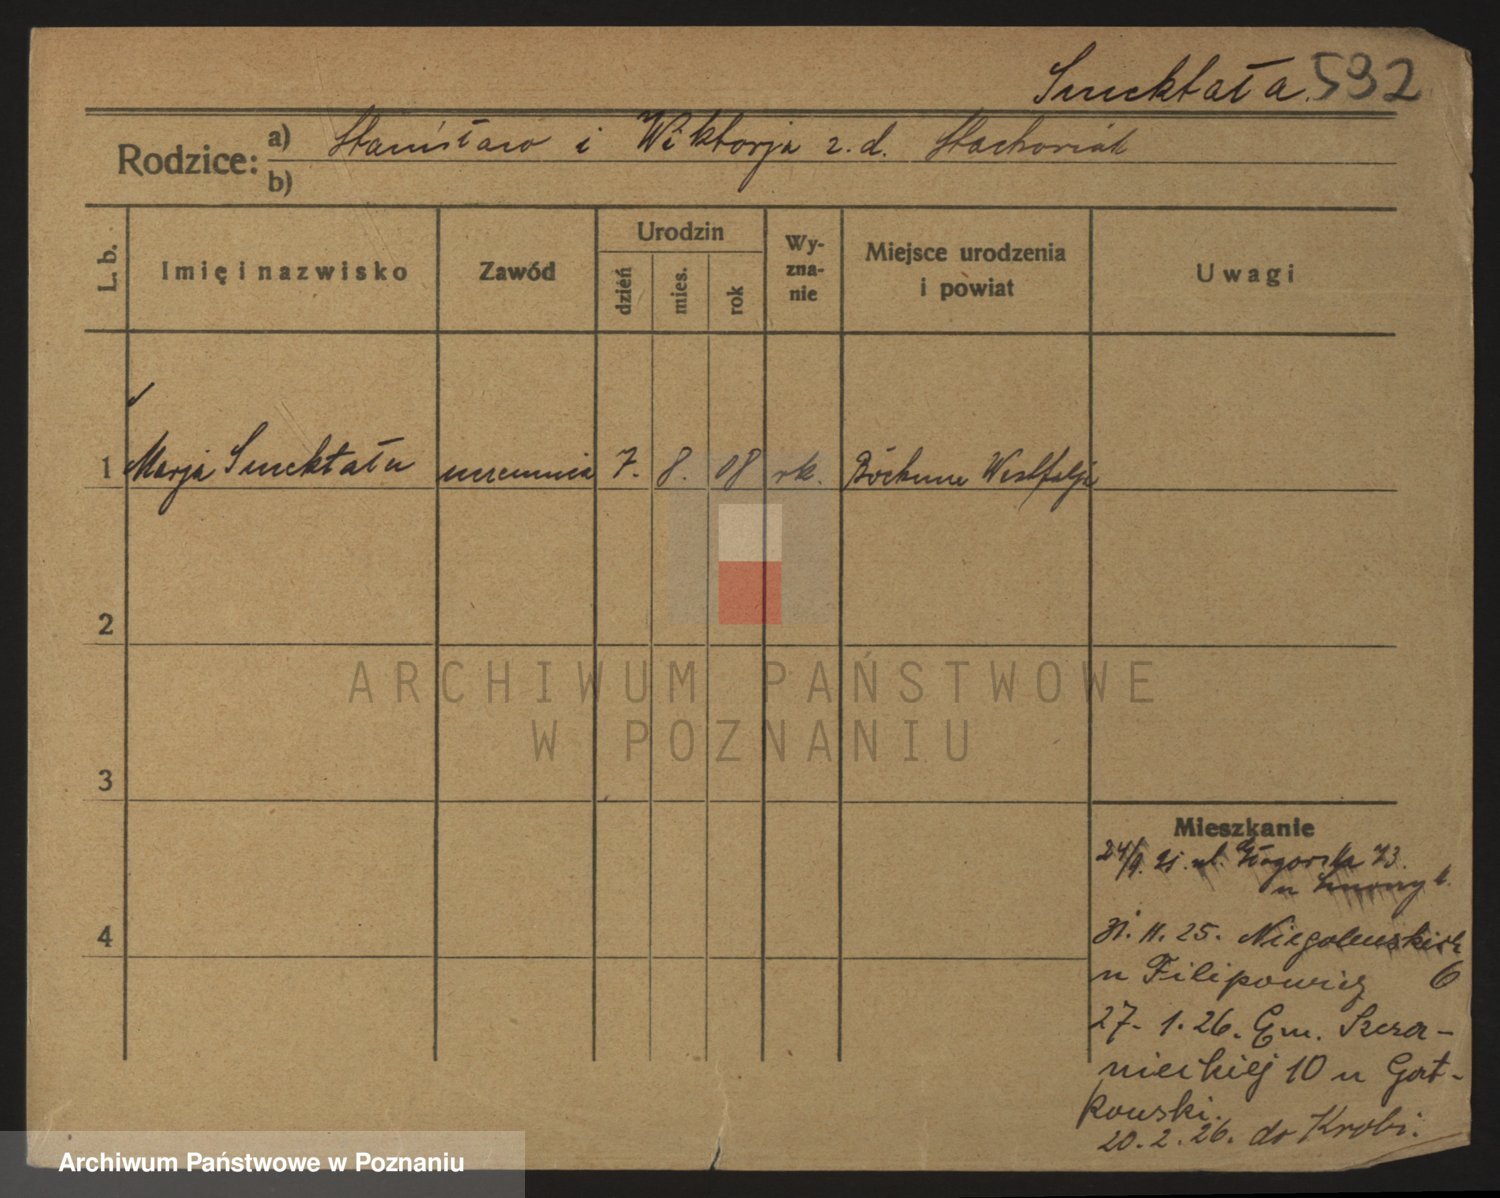 Smektała. 592
Rodzice: a) Stanisław i Wiktorja z. d. Stachoviak
b)
L. b.
Imię i nazwisko
Zawód
Urodzin
dzień
mies.
rok
Wy-
zna-
nie
Miejsce urodzenia
i powiat
Uwagi
1 Marja Smektała uczennica 7. 8. 08 rk. Böchum Westfalja
2
3
4
Mieszkanie
ul. Głogorska 73.
u
31. 11. 25. Niegolewskich
u Filipowicz 6
27. 1. 26. Em. Szcza-
nieckiej 10 u Gat-
kowski.
20. 2. 26. do Krobi.
ARCHIWUM PAŃSTWOWE
W POZNANIU
Archiwum Państwowe w Poznaniu